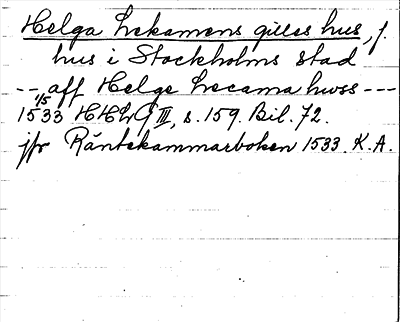 Helga Lekamens gilles hus, f.
hus i Stockholms stad
-- aff Helge Lecama huss ---
1/5
1533 HHLG III, s. 159. Bil. 72.
jfr Räntekammarboken 1533. K.A.